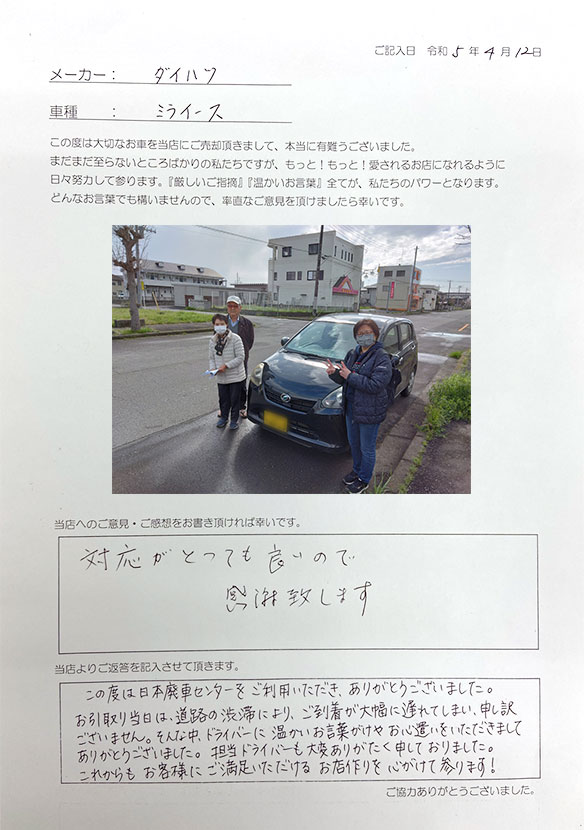 ご記入日 令和 5 年 4 月 12日
メーカー： ダイハツ
車種 ： ミライース
この度は大切なお車を当店にご売却頂きまして、本当に有難うございました。
まだまだ至らないところばかりの私たちですが、もっと！もっと！愛されるお店になれるように
日々努力して参ります。『厳しいご指摘』『温かいお言葉』全てが、私たちのパワーとなります。
どんなお言葉でも構いませんので、率直なご意見を頂けましたら幸いです。
当店へのご意見・ご感想をお書き頂ければ幸いです。
対応がとっても良いので
感謝致します
当店よりご返答を記入させて頂きます。
この度は日本廃車センターをご利用いただき、ありがとうございました。
お引取り当日は、道路の渋滞により、ご到着が大幅に遅れてしまい、申し訳
ございません。そんな中、ドライバーに温かいお言葉がけやお心遣いをいただきまして
ありがとうございました。担当ドライバーも大変ありがたく申しておりました。
これからもお客様にご満足いただけるお店作りを心がけて参ります！
ご協力ありがとうございました。